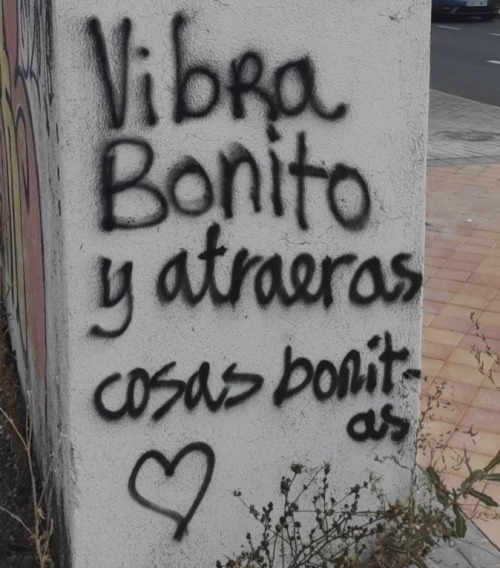 Vibra
Bonito
y atraeras
cosas bonit-
as